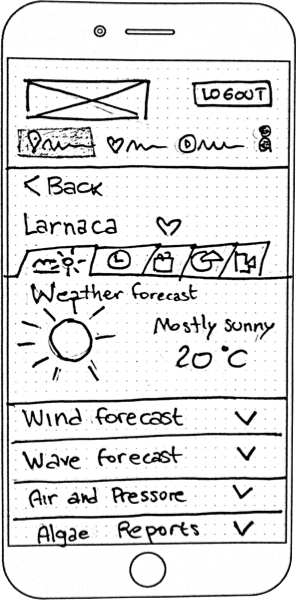 LOGOUT
< Back
Larnaca
Weather forecast
Mostly sunny
20°C
Wind forecast
Wave forecast
Air and Pressure
Algae Reports